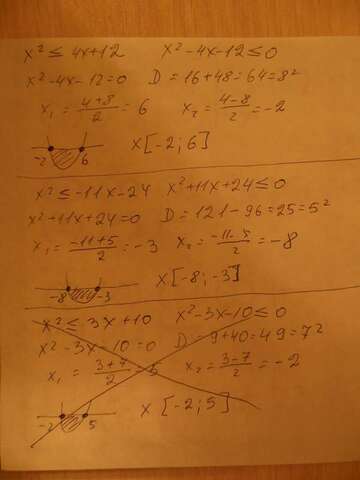 x² ≤ 4x+12 x²-4x-12≤0
x²-4x-12=0 D = 16+48=64=8²
x₁ = (4+8)/2 = 6 x₂ = (4-8)/2 = -2
-2 6 x[-2; 6]
x² ≤ -11x-24 x²+11x+24≤0
x²+11x+24=0 D = 121-96=25=5²
x₁ = (-11+5)/2 = -3 x₂ = (-11-5)/2 = -8
-8 -3 x[-8; -3]
x² ≤ 3x+10 x²-3x-10≤0
x²-3x-10=0 D = 9+40=49=7²
x₁ = (3+7)/2 = 5 x₂ = (3-7)/2 = -2
-2 5 x[-2; 5]